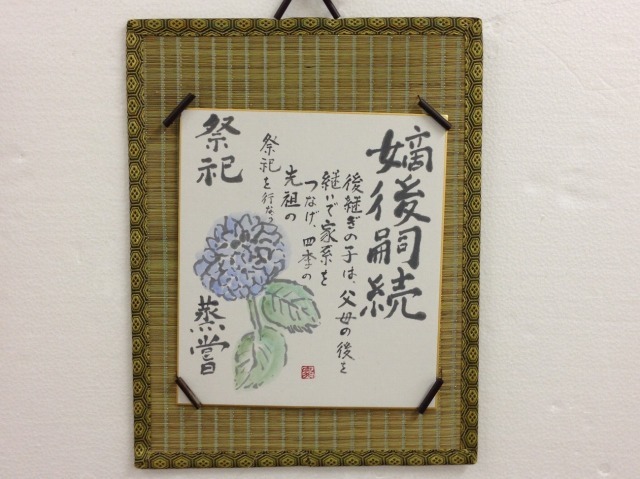 嫡後嗣続
後継ぎの子は、父母の後を
継いで家系を
つなげ、四季の
先祖の
祭祀を行なう
祭祀
蒸嘗